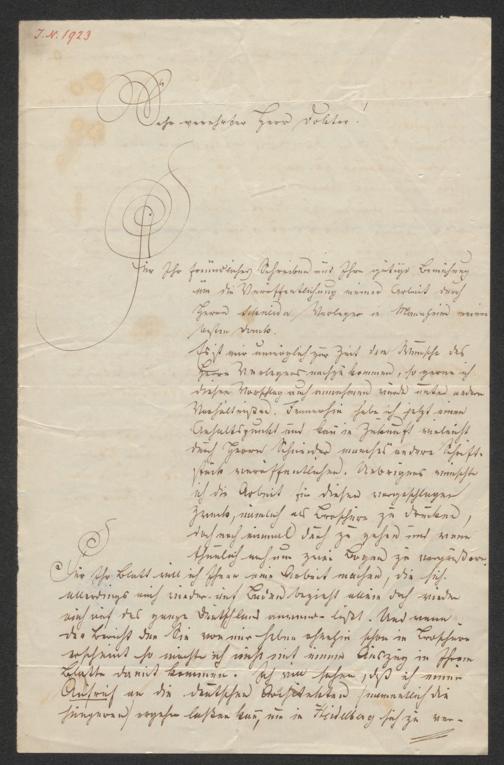 J. N. 1923
Sehr verehrter Herr Doktor!
Für Ihr freundliches Schreiben und Ihre gütige Bemühung
um die Veröffentlichung meiner Arbeit durch
Herrn Verleger in Mannheim meinen
besten Dank.
Es ist mir unmöglich zur Zeit dem Wunsche des
Herrn Verlegers nachzukommen, so gerne ich
diesen Vorschlag auch annehmen würde unter andern
Verhältnissen. Immerhin habe ich jetzt einen
Anhaltspunkt und kann in Zukunft vielleicht
durch Herrn Schneider manches andere Schrift-
stück veröffentlichen. Uebrigens wünschte
ich die Arbeit für diesen vorgeschlagenen
Zweck, nämlich als Broschüre zu drucken,
doch noch einmal durch zu gehen und wenn
thunlich noch um zwei Bogen zu vergrößern.
Für Ihr Blatt will ich Ihnen eine Arbeit machen, die sich
allerdings auch wieder auf Baden bezieht allein doch wieder
auf das ganze Deutschland anwenden läßt. Und wenn
der Bericht den Sie von mir haben ohnehin schon in Broschüre
erscheint so möchte ich nicht mit einem Auszug in Ihrem
Blatte damit kommen. Ich will sehen, daß ich einen
Aufruf an die deutschen Architekten (namentlich die
jüngeren) ergehen lassen kann, um in Heidelberg sich zu ver-